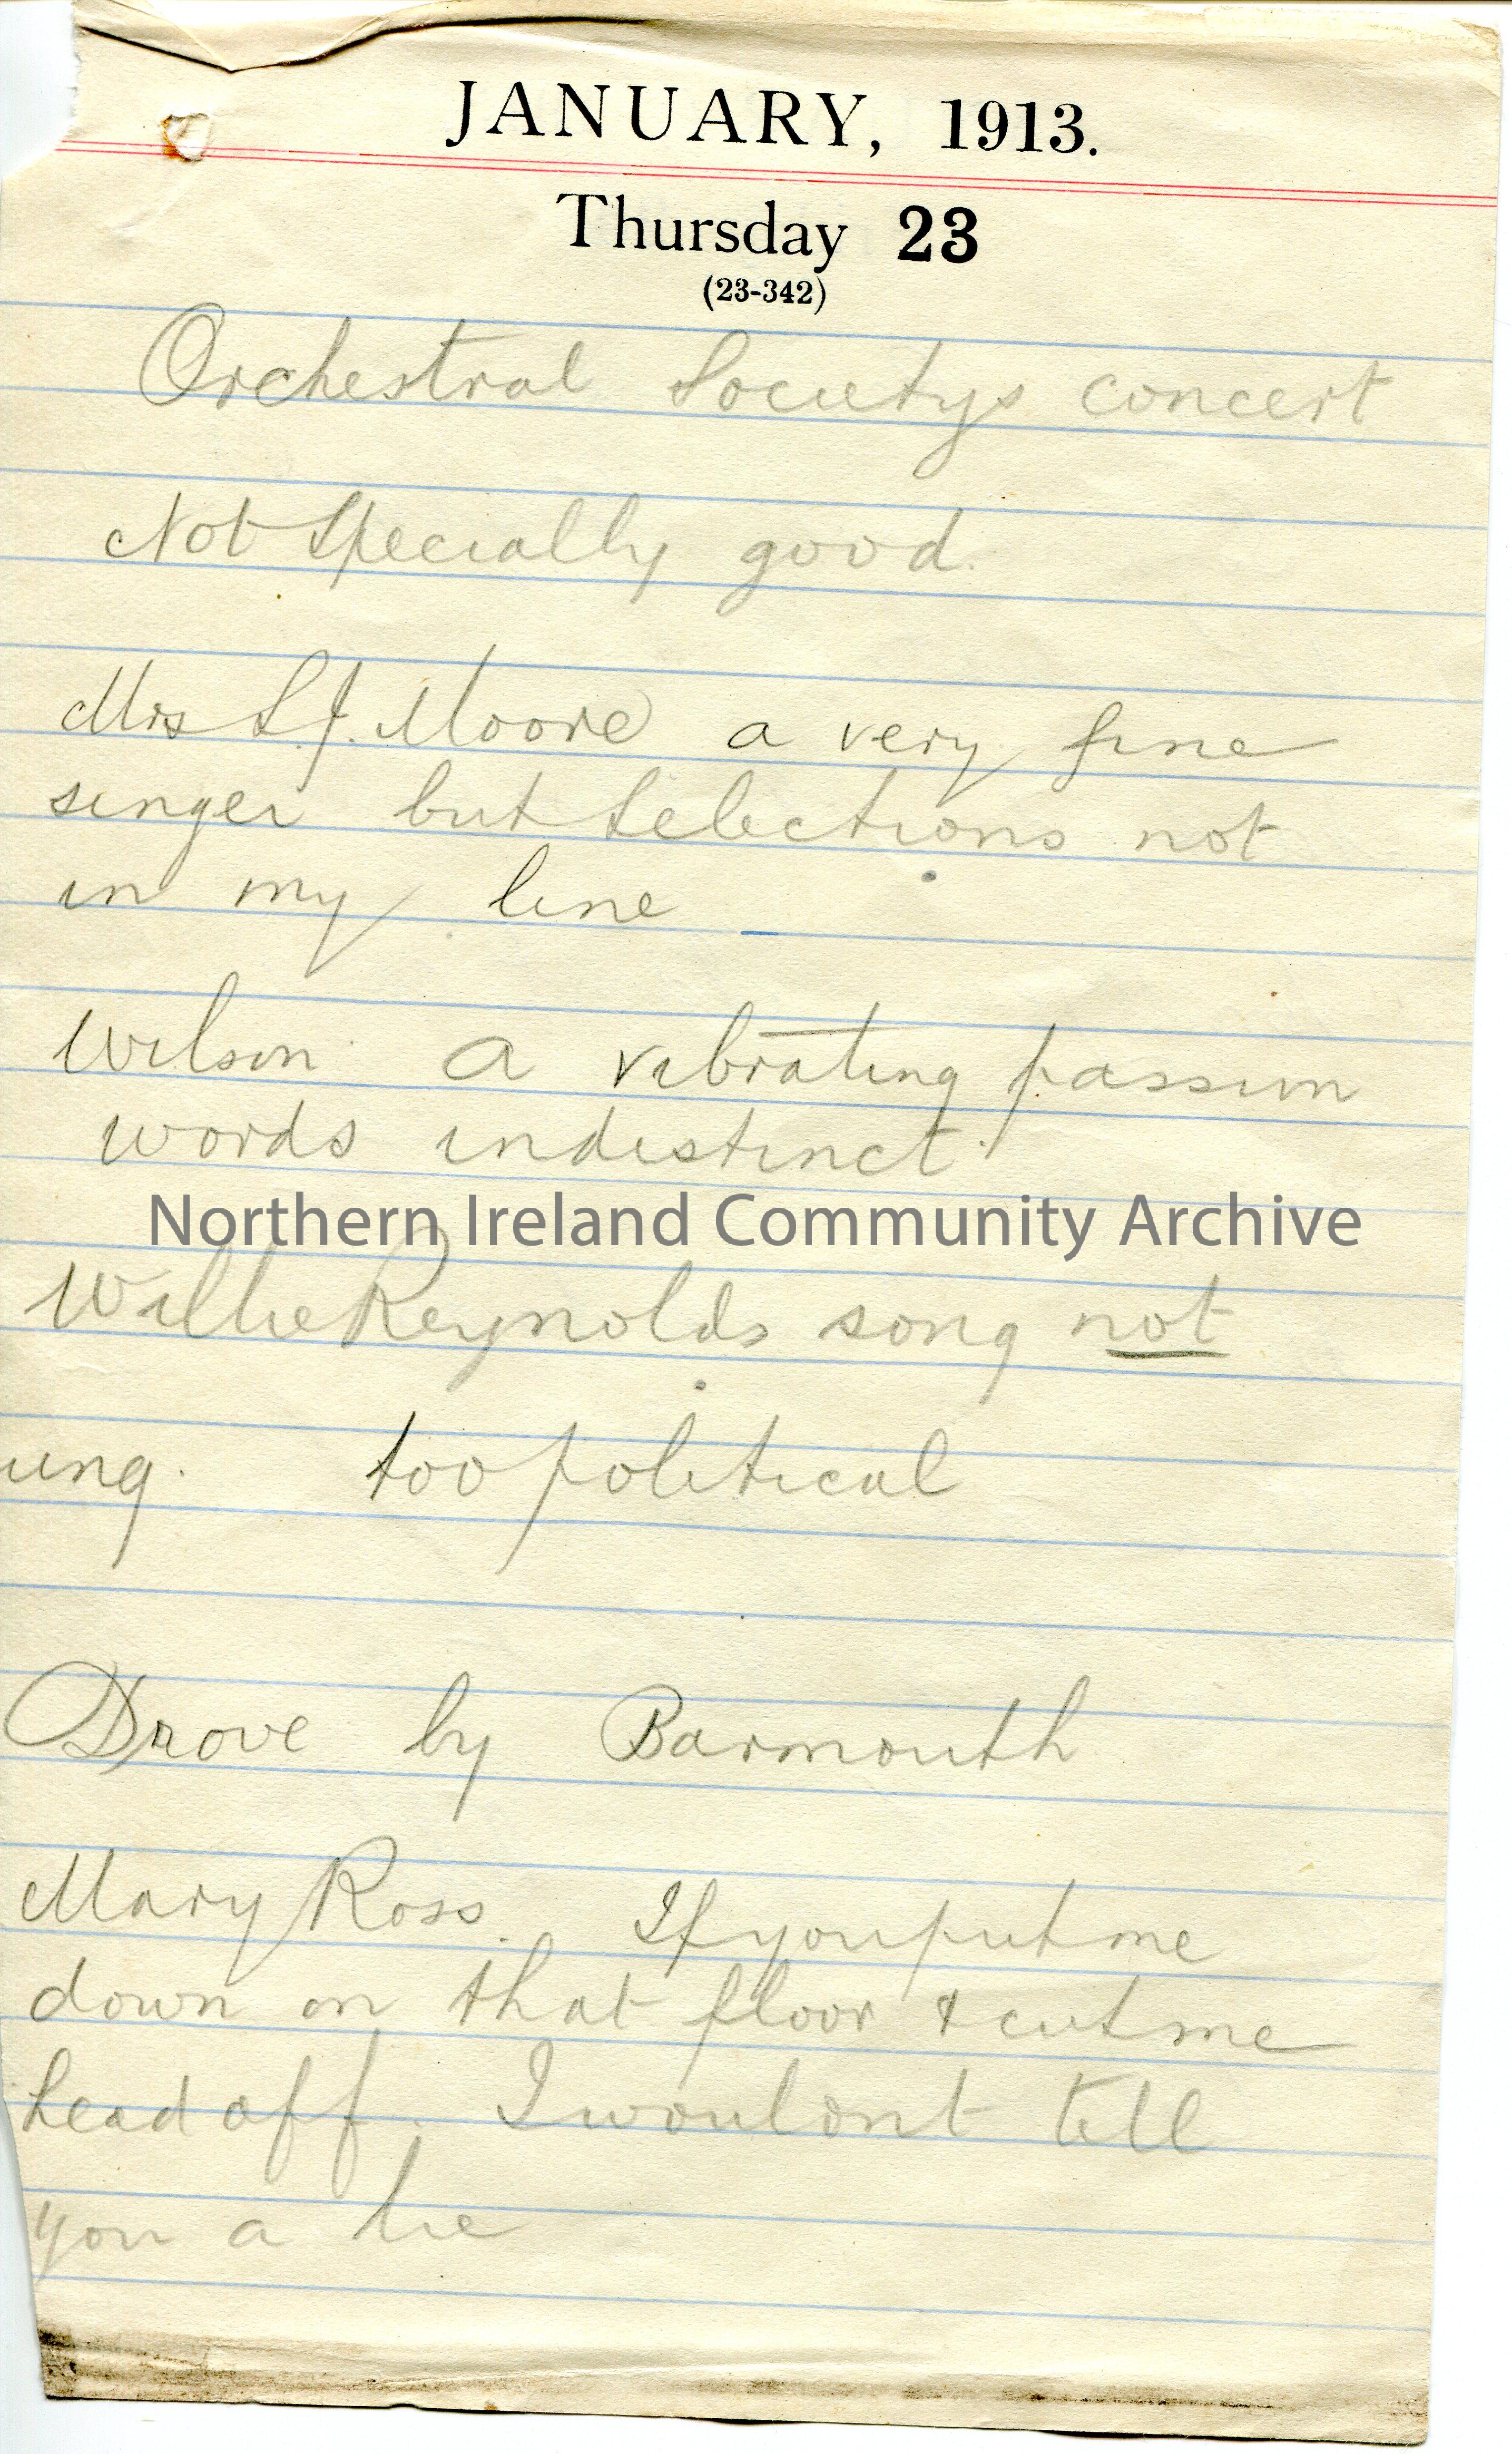 JANUARY, 1913.
Thursday 23
(23-342)
Orchestral Societys concert
Not Specially good.
Mrs S.J. Moore a very fine
singer but Selections not
in my line
Wilson a vibrating passion
words indistinct.
Northern Ireland Community Archive
Willie Reynolds song not
ung. too political
Drove by Barmouth
Mary Ross. If you put me
down on that floor & cut me
head off. I wouldnt tell
you a lie